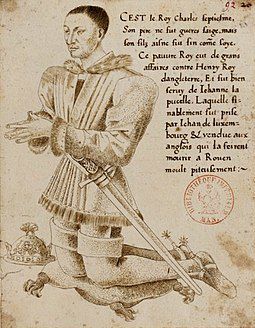 92
CEST le Roy Charles septiesme,
Son pere ne fut gueres saige, mais
son filz aisne fut fin come soye.
Ce pauure Roy eut de grans
affaires contre Henry Roy
dangleterre, Et fut bien
seruy de Iehanne la
pucelle. Laquelle fi-
nablement fut prise
par Iehan de luxem-
bourg & vendue aux
anglois qui la feirent
mourir a Rouen
moult piteusement:~
MAN.